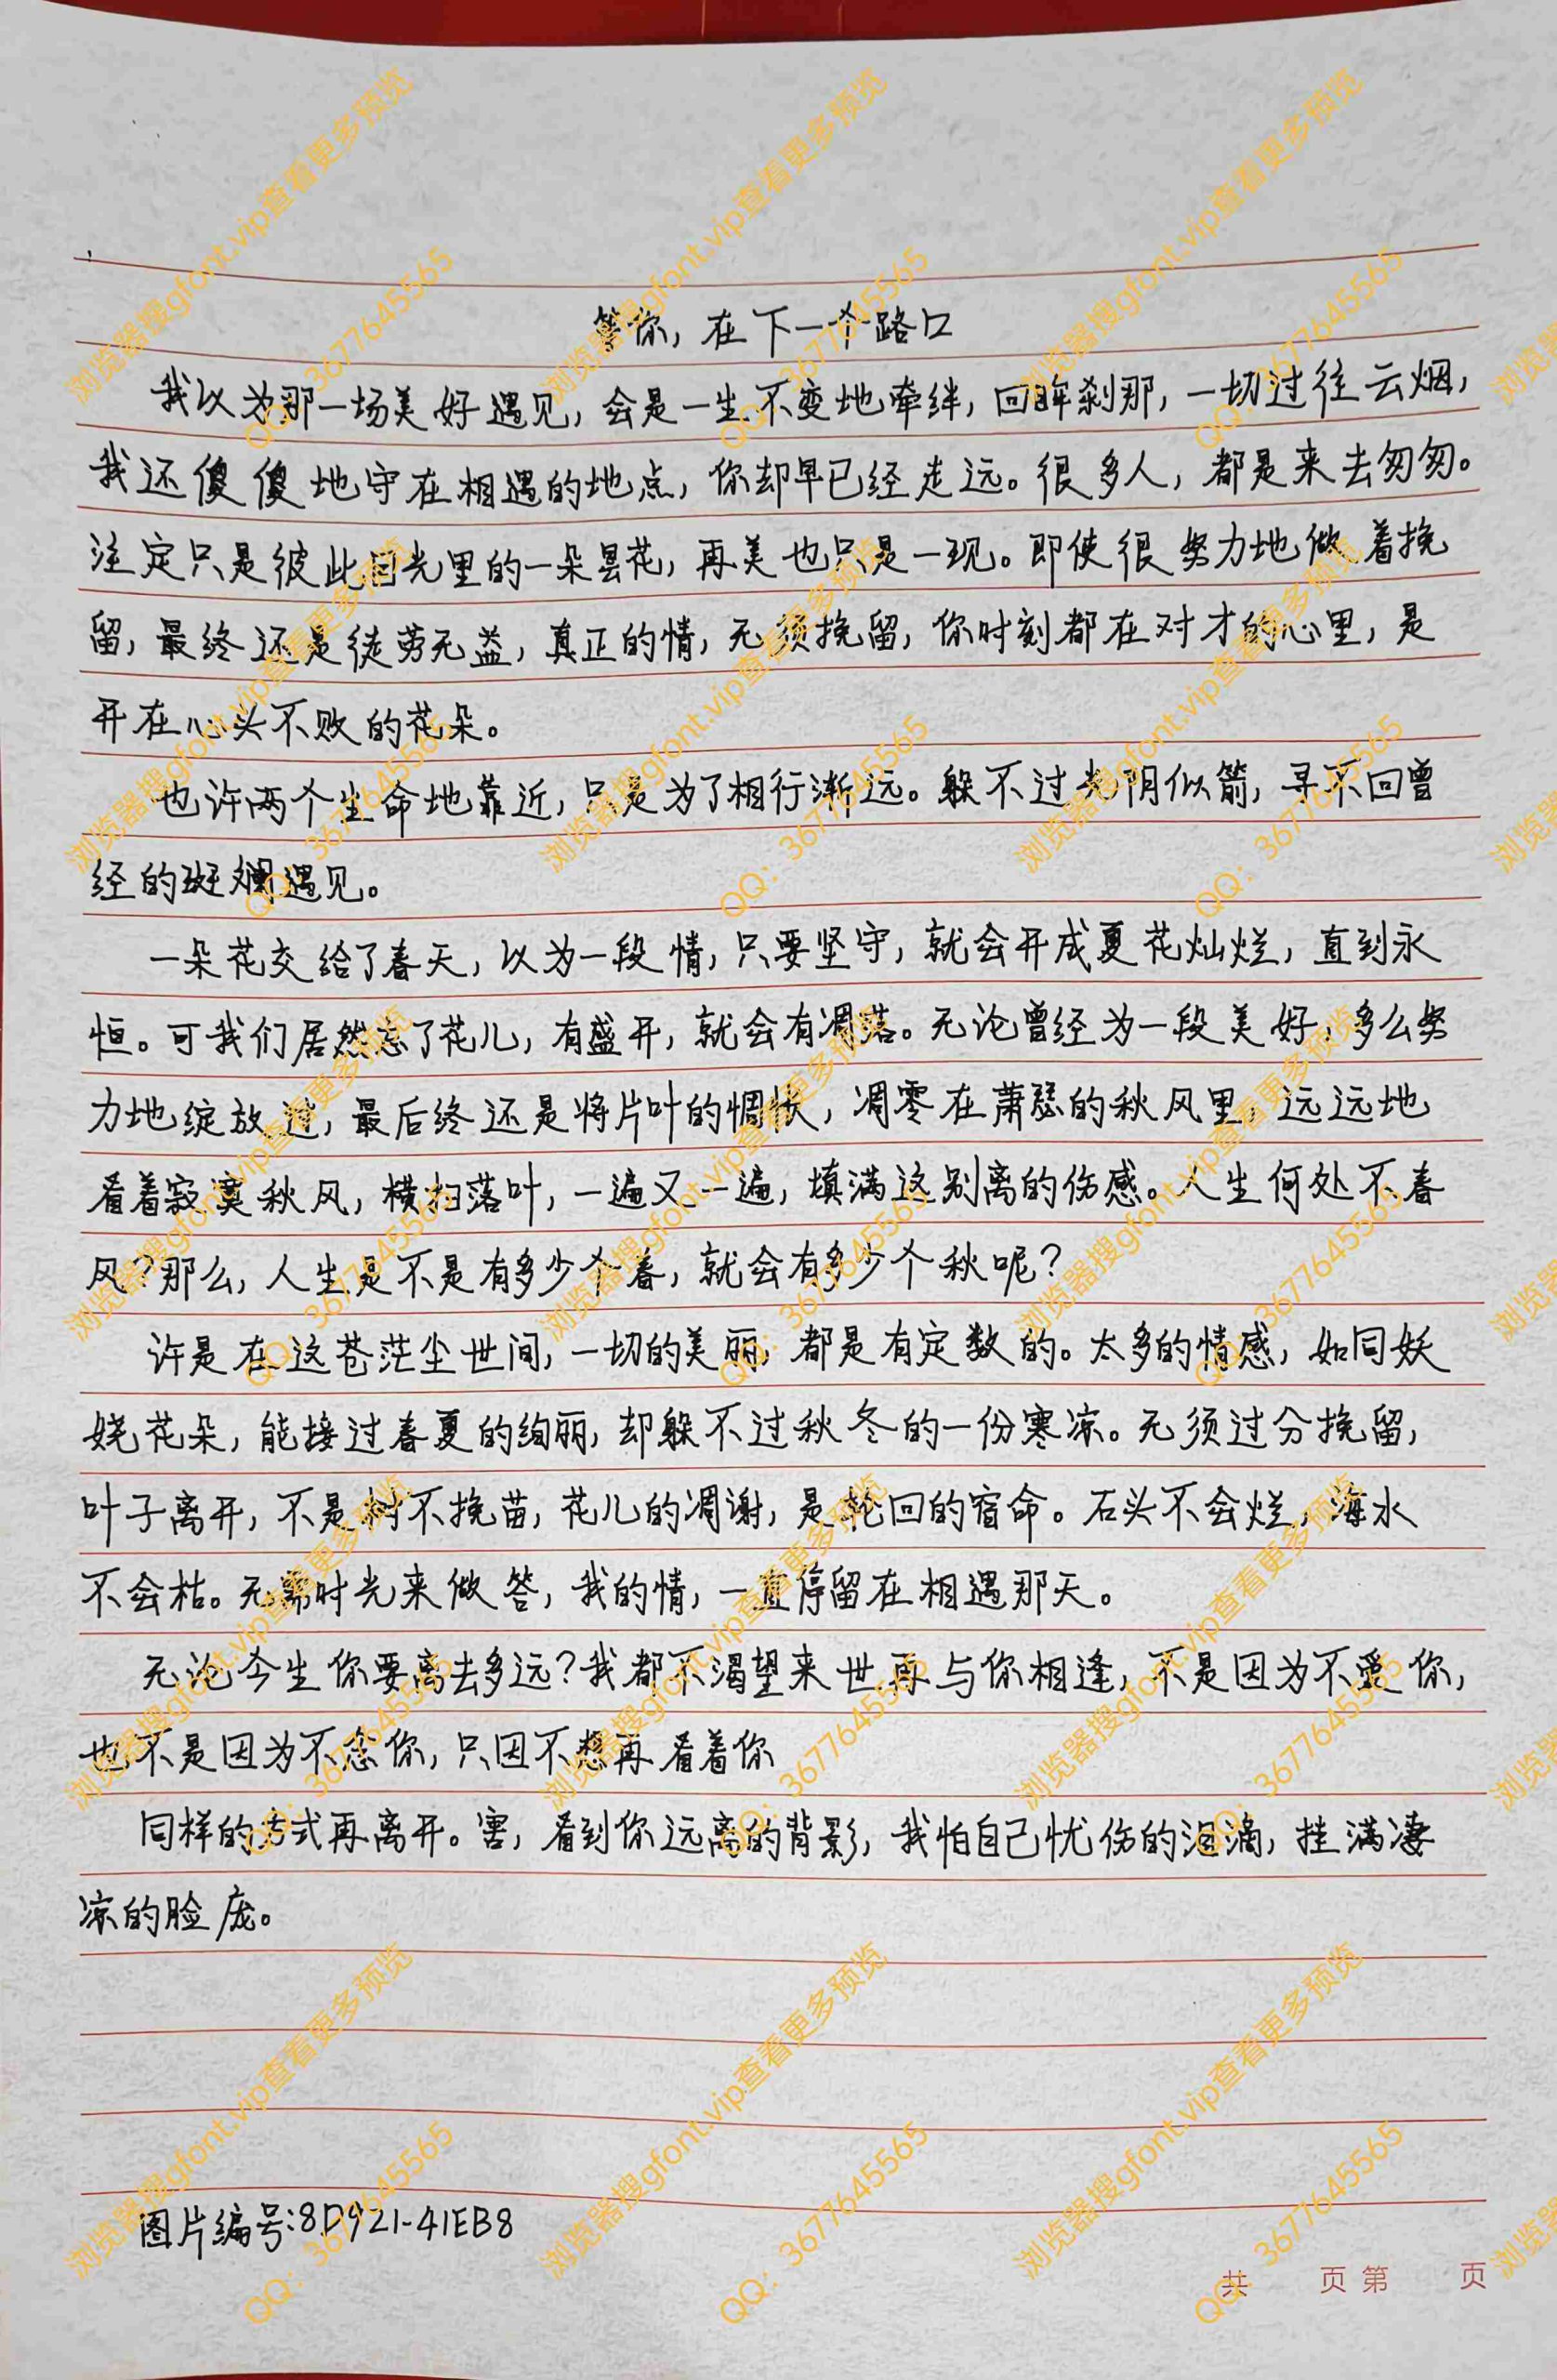 等你，在下一个路口
我以为那一场美好遇见，会是一生不变地牵绊，回眸刹那，一切过往云烟，
我还傻傻地守在相遇的地点，你却早已经走远。很多人，都是来去匆匆。
注定只是彼此目光里的一朵昙花，再美也只是一现。即使很努力地做着挽
留，最终还是徒劳无益，真正的情，无须挽留，你时刻都在对才的心里，是
开在心头不败的花朵。
也许两个生命地靠近，只是为了相行渐远。躲不过光阴似箭，寻不回曾
经的斑斓遇见。
一朵花交给了春天，以为一段情，只要坚守，就会开成夏花灿烂，直到永
恒。可我们居然忘了花儿，有盛开，就会有凋落。无论曾经为一段美好，多么努
力地绽放过，最后终还是将片叶的惆怅，凋零在萧瑟的秋风里，远远地
看着寂寞秋风，横扫落叶，一遍又一遍，填满这别离的伤感。人生何处不春
风？那么，人生是不是有多少个春，就会有多少个秋呢？
许是在这苍茫尘世间，一切的美丽，都是有定数的。太多的情感，如同妖
娆花朵，能接过春夏的绚丽，却躲不过秋冬的一份寒凉。无须过分挽留，
叶子离开，不是树不挽苗，花儿的凋谢，是轮回的宿命。石头不会烂，海水
不会枯。无需时光来做答，我的情，一直停留在相遇那天。
无论今生你要离去多远？我都不渴望来世再与你相逢，不是因为不爱你，
也不是因为不念你，只因不想再看着你
同样的方式再离开。害，看到你远离的背影，我怕自己忧伤的泪滴，挂满凄
凉的脸庞。
图片编号：8D921-41EB8
共 页 第 页
浏览器搜gfont.vip查看更多预览
QQ：3677645565